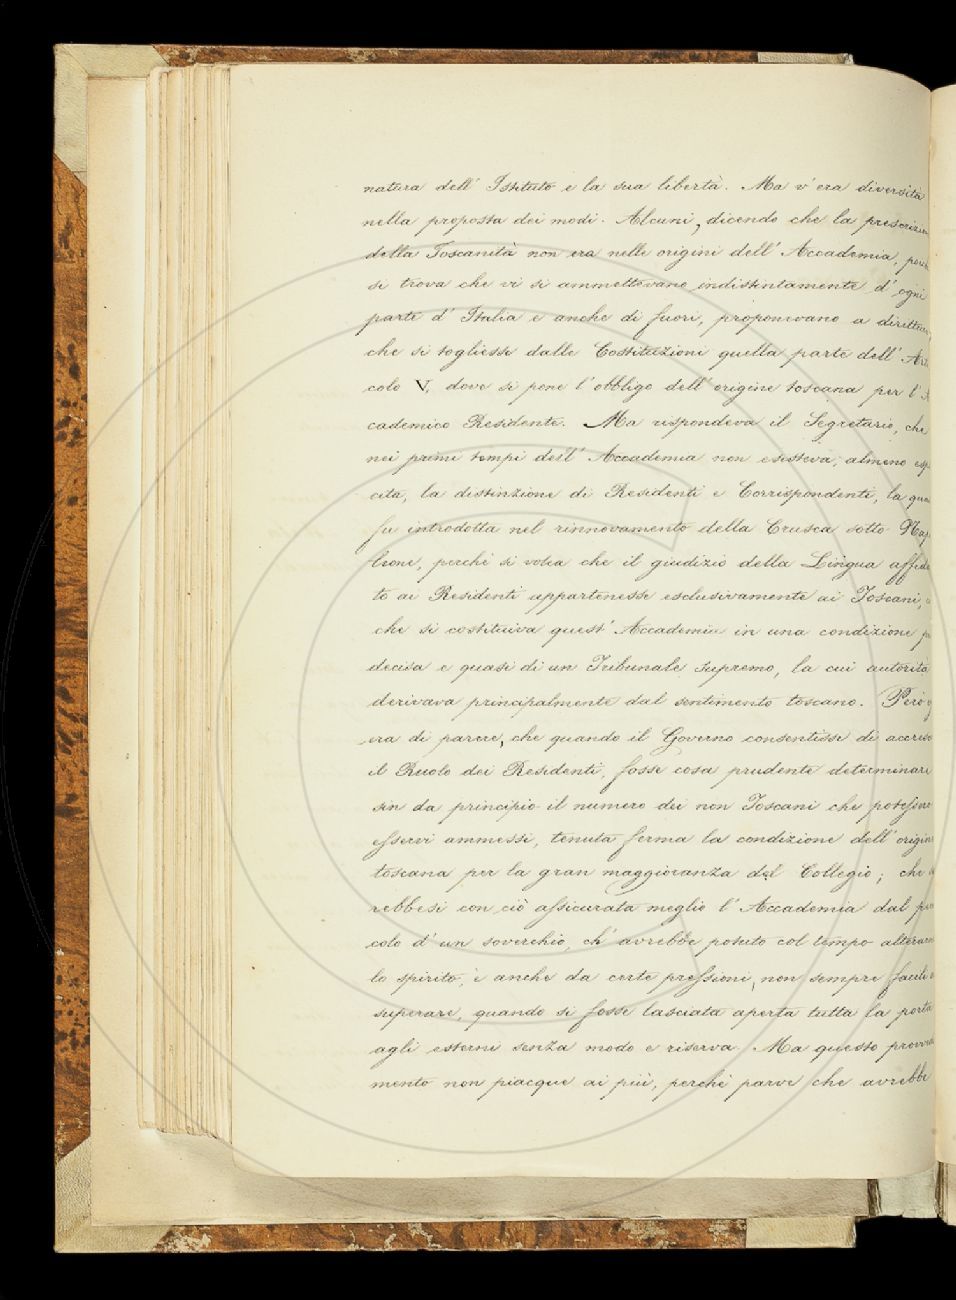 natura dell' Istituto e la sua libertà. Ma v'era diversità
nella proposta dei modi. Alcuni, dicendo che la prescrizion
della Toscanità non era nelle origini dell' Accademia,
si trova che vi si ammettevano indistintamente d'ogni
parte d'Italia e anche di fuori, proponevano a dirittura,
che si togliesse dalle Costituzioni quella parte dell' Arti
colo V, dove si pone l'obbligo dell' origine toscana per l'A
cademico Residente. Ma rispondeva il Segretario, che
nei primi tempi dell' Accademia non esisteva, almeno esp
cita, la distinzione di Residenti e Corrispondenti, la qua
fu introdotta nel rinnovamento della Crusca sotto Nap
leone, perchè si volea che il giudizio della Lingua affida
to ai Residenti appartenesse esclusivamente ai Toscani,
che si costituiva quest' Accademia in una condizione
decisa e quasi di un Tribunale supremo, la cui autorità
derivava principalmente dal sentimento toscano. Però
era di parere, che quando il Governo consentisse di accresc
il Ruolo dei Residenti, fosse cosa prudente determinare
sin da principio il numero dei non Toscani che potessero
esservi ammessi, tenuta ferma la condizione dell' origine
toscana per la gran maggioranza del Collegio; che
rebbesi con ciò assicurata meglio l'Accademia dal per
colo d'un soverchio, ch' avrebbe potuto col tempo alterarn
lo spirito, e anche da certe pressioni, non sempre facili a
superare, quando si fosse lasciata aperta tutta la porta
agli esterni senza modo e riserva. Ma questo provve
mento non piacque ai più, perchè parve che avrebbe